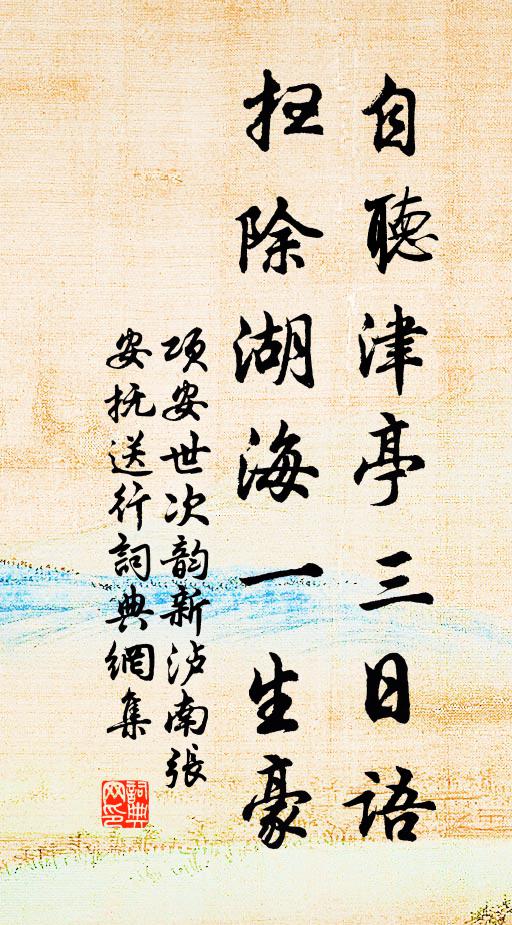 自聽津亭三日語
扫除湖海一生豪
项安世次韵新泸南張
安抚送行詞典網集
詞典
网印